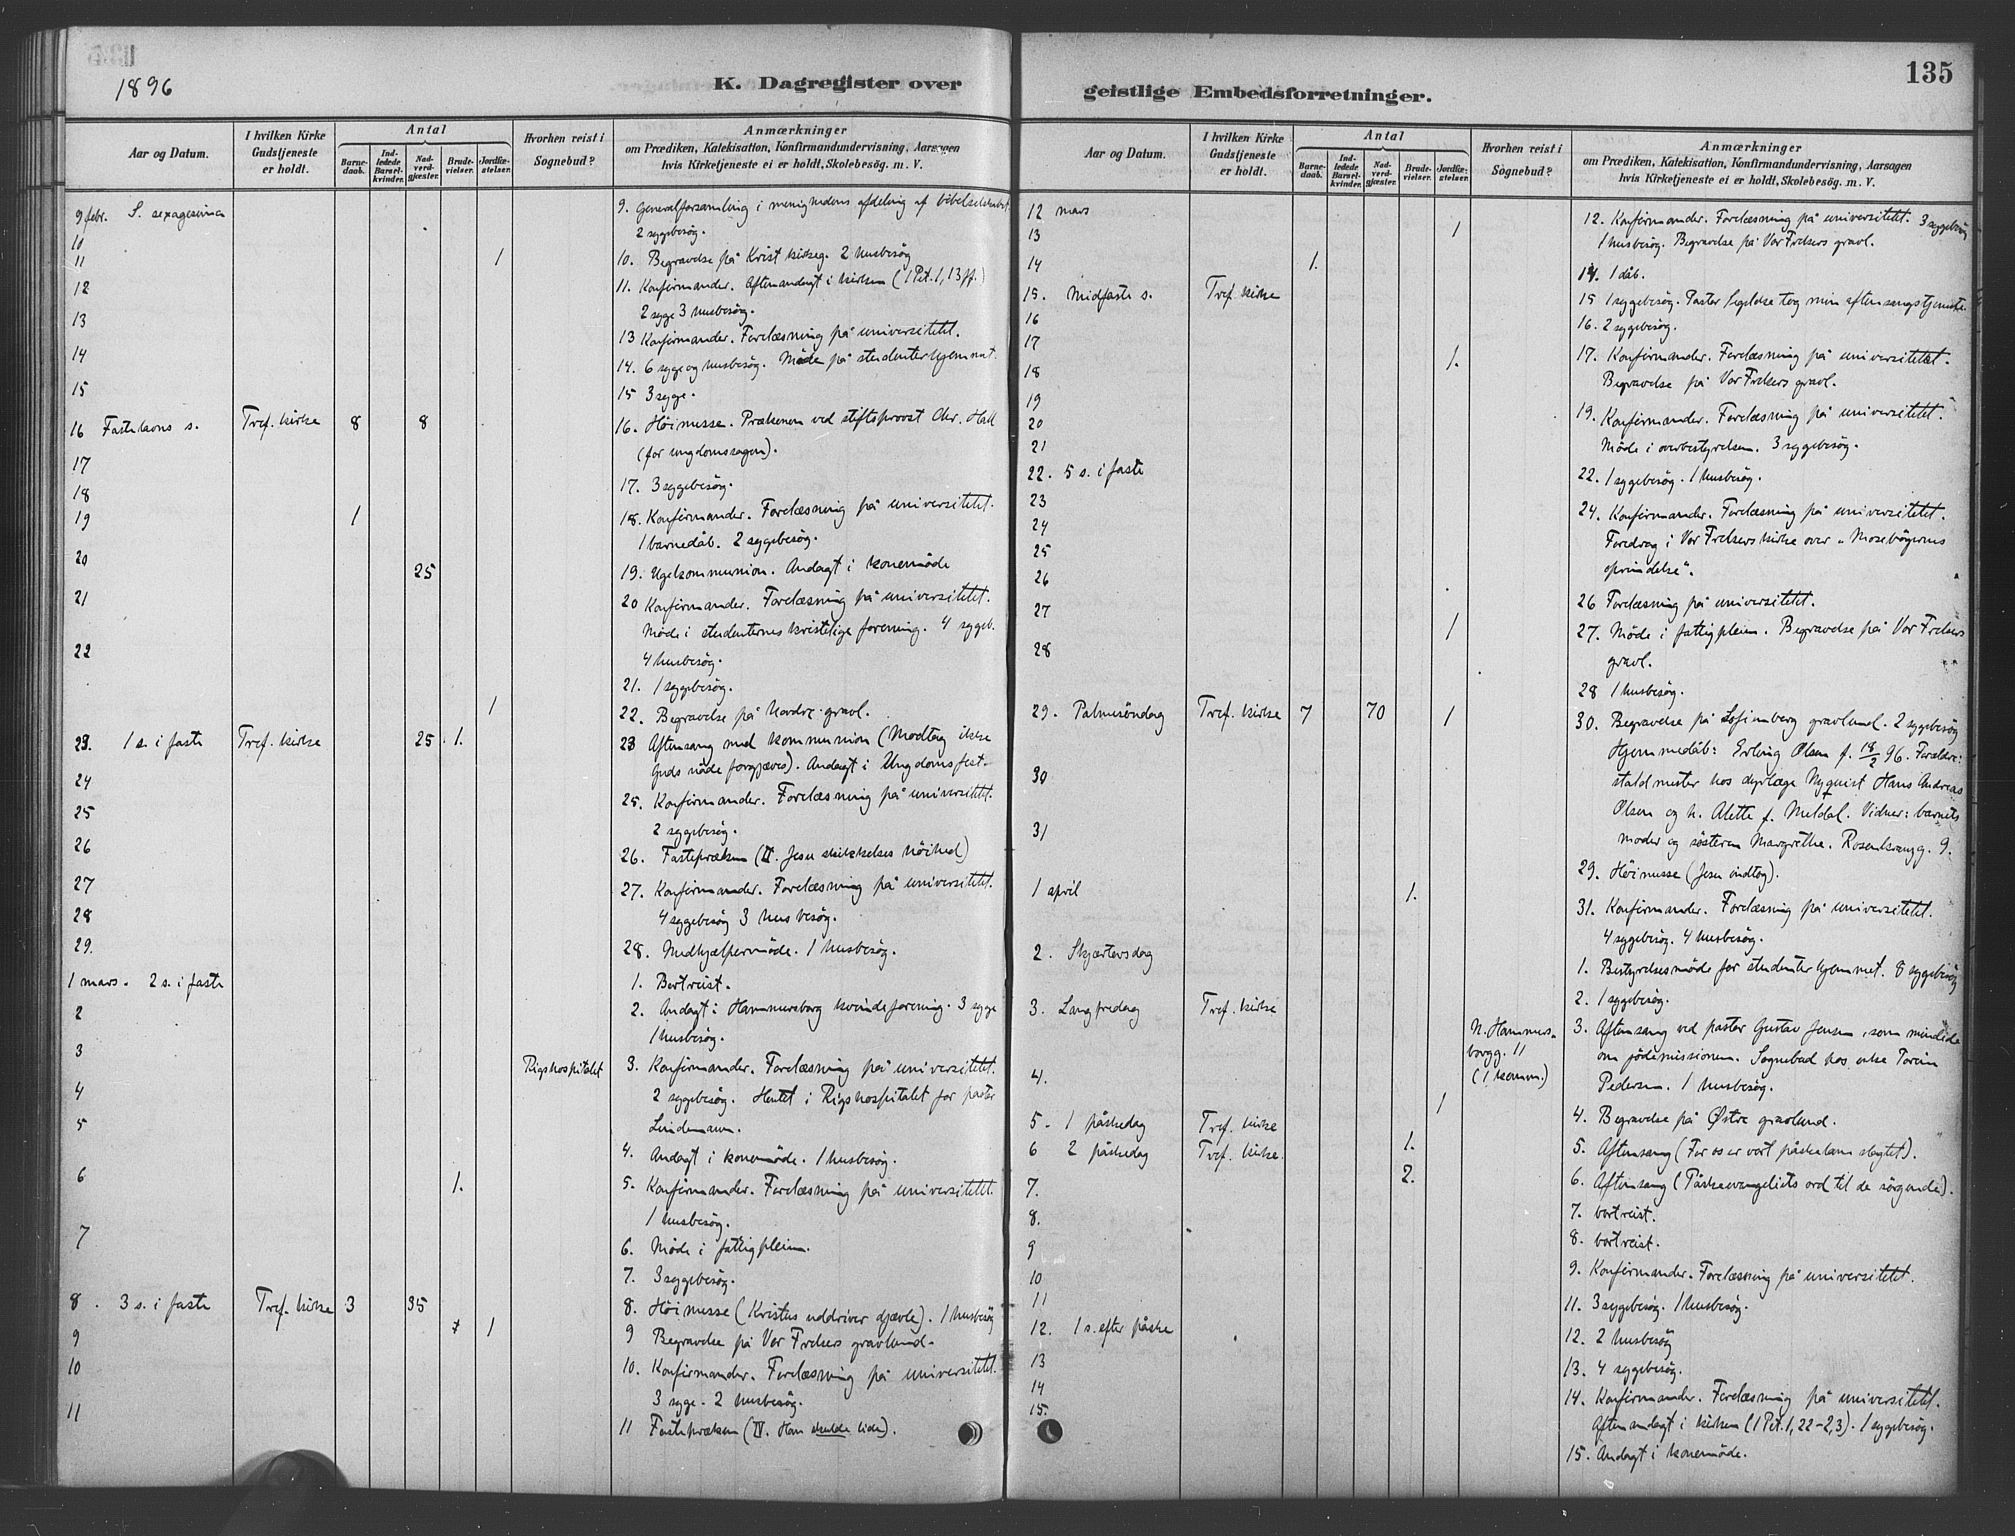 1896
K. Dagregister over
Aar og Datum.
I hvilken Kirke Gudstjeneste er holdt.
Antal
Barne-daab.
Ind-ledede Barsel-kvinder.
Nad-verd-gjæster.
Brude-vielser.
Jordfæ-stelser.
Hvorhen reist i Sognebud?
Anmærkninger
om Prædiken, Katekisation, Konfirmandundervisning, Aarsagen
hvis Kirketjeneste ei er holdt, Skolebesøg. m. V.
9 febr. S. sexagesima
9. Generalforsamling i menighedens afdeling af bibelselskabet.
2 sygebesøg.
10
11 1
10. Begravelse på Krist kirkeg. 2 husbesøg
12
11. Konfirmander. Aftenandagt i kirken (1 Pet. 1, 13 ff.)
2 syge 3 husbesøg.
13
13 Konfirmander. Forelæsning på universitetet.
14
14. 6 syge og husbesøg. Møde på studenterhjemmet.
15
15 3 syge.
16 Fastelavns s. Tref. kirke 8 8
16. Höimesse. Prækenen ved stiftsprovst Chr. Hall
(for ungdomssagen).
17
17. 3 sygebesøg.
18
19 1
18. Konfirmander. Forelæsning på universitetet.
1 barnedåb. 2 sygebesøg.
20 25
19. Ugekommunion. Andagt i konemøde
21
20 Konfirmander. Forelæsning på universitetet.
Møde i studenternes kristelige forening. 4 sygeb.
22
4 husbesøg.
21. 1 sygebesøg.
1
22. Begravelse på Nordre gravl.
23. 1 s. i faste Tref. kirke 25 1.
23 Aftensang med kommunion (Modtag ikke
Guds nåde forgjæves). Andagt i Ungdomsfest.
24
25
25. Konfirmander. Forelæsning på universitetet.
2 sygebesøg.
26
26. Fastepræken (II. Jesu skikkelses høihed)
27
27. Konfirmander. Forelæsning på universitetet.
28
4 sygebesøg 3 husbesøg.
29.
28. Medhjælpermøde. 1 husbesøg.
1 mars. 2 s. i faste
1. Bortreist.
2
2. Andagt i Hammersborg kvindeforening. 3 syge
1 husbesøg.
3 Rigshospitalet
3. Konfirmander. Forelæsning på universitetet.
4
2 sygebesøg. Hentet i Rigshospitalet for pastor
5
Lindemann.
4. Andagt i konemøde. 1 husbesøg.
6 1.
5. Konfirmander. Forelæsning på universitetet.
1 husbesøg.
7
6. Møde i fattigpleien.
7. 3 sygebesøg.
8. 3 s. i faste Tref. kirke 3 35
8. Höimesse (Kristus uddriver djævle). 1 husbesøg
9 1
9 Begravelse på Vor Frelsers gravlund.
10
10. Konfirmander. Forelæsning på universitetet.
3 syge. 2 husbesøg.
11
11 Fastepræken (IV. Han skulde lide).
135
geistlige Embedsforretninger.
Aar og Datum.
I hvilken Kirke Gudstjeneste er holdt.
Antal
Barne-daab.
Ind-ledede Barsel-kvinder.
Nad-verd-gjæster.
Brude-vielser.
Jordfæ-stelser.
Hvorhen reist i Sognebud?
Anmærkninger
om Prædiken, Katekisation, Konfirmandundervisning, Aarsagen
hvis Kirketjeneste ei er holdt, Skolebesøg. m. V.
12 mars
12. Konfirmander. Forelæsning på universitetet. 3 sygebesøg
13 1
1 husbesøg. Begravelse på Vor Frelsers gravl.
14 1.
14. 1 dåb.
15. Midfaste s. Tref. kirke
15 1 sygebesøg. Pastor tog min aftensangstjeneste.
16
16. 2 sygebesøg.
17 1.
17. Konfirmander. Forelæsning på universitetet.
18
Begravelse på Vor Frelsers gravl.
19
19. Konfirmander. Forelæsning på universitetet.
20
21
Møde i overbestyrelsen. 3 sygebesøg.
22. 5 s. i faste
22. 1 sygebesøg. 1 husbesøg.
23
24
24. Konfirmander. Forelæsning på universitetet.
25
Foredrag i Vor Frelsers kirke over „Mosebøgernes
26
oprindelse".
26 Forelæsning på universitetet.
27 1
27. Møde i fattigpleien. Begravelse på Vor Frelsers
28
gravl.
28 1 husbesøg.
29. Palmesöndag Tref. kirke 7 70 1
30. Begravelse på Sofienberg gravlund. 2 sygebesøg
Hjemmedåb: Erling Olsen f. 18/2 96. Forældre:
30
staldmester hos dyrlæge Nyquist Hans Andreas
Olsen og h. Alette f. Meldal. Vidner: barnets
31
moder og søsteren Margrethe. Rosenkrantzg. 9.
29. Höimesse (Jesu indtog).
1 april 1.
31. Konfirmander. Forelæsning på universitetet.
4 sygebesøg. 4 husbesøg.
2. Skjærtorsdag
1. Bestyrelsesmøde for studenterhjemmet. 8 sygebesøg
2. 1 sygebesøg.
3. Langfredag Tref. kirke N. Hammers-
borgg. 11
(1 komm.)
3. Aftensang ved pastor Gustav Jensen, som mindede
om jødemissionen. Sognebud hos enke
4. 1
Pedersen. 1 husbesøg.
4. Begravelse på Østre gravlund.
5. 1 påskedag Tref. kirke
5. Aftensang (For os er vort påskelam slagtet).
6 2 påskedag Tref. kirke. 1.
6. Aftensang (Påskeevangeliets ord til de sørgende).
7. 2.
7. bortreist.
8.
8. bortreist.
9
9. Konfirmander. Forelæsning på universitetet.
10
11
11. 3 sygebesøg. 1 husbesøg.
12. 1 s. efter påske
12. 2 husbesøg
13
13. 4 sygebesøg.
14
14. Konfirmander. Forelæsning på universitetet.
15.
Aftenandagt i kirken (1 Pet. 1, 22-2,3). 1 sygebesøg.
15. Andagt i konemøde.